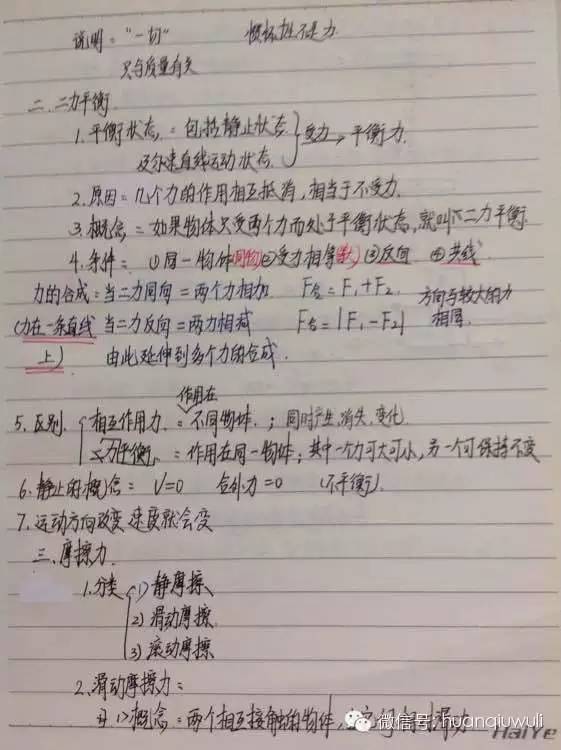 说明："一切" 惯性不是力
只与质量有关
二、二力平衡
1. 平衡状态：包括静止状态 受力 平衡力
及匀速直线运动状态
2. 原因：几个力的作用相互抵消，相当于不受力.
3. 概念：如果物体只受两个力而处于平衡状态，就叫二力平衡.
4. 条件： ①同一物体 ②受力相等 ③反向 ④共线
力的合成：当二力同向：两个力相加 F合=F₁+F₂ 方向与较大的力
(力在一条直线 当二力反向：两力相减 F合=|F₁-F₂| 相同
上) 由此延伸到多个力的合成.
作用在
5. 区别 相互作用力：不同物体； 同时产生、消失、变化
二力平衡：作用在同一物体；其中一个力可大可小，另一个可保持不变
6. 静止的概念： V=0 合外力=0 (不平衡)
7. 运动方向改变 速度就会变
三、摩擦力
1. 分类 1) 静摩擦
2) 滑动摩擦
3) 滚动摩擦
2. 滑动摩擦力：
1) 概念：两个相互接触的物体，
微信号: huanqiuwuli
HaiYe